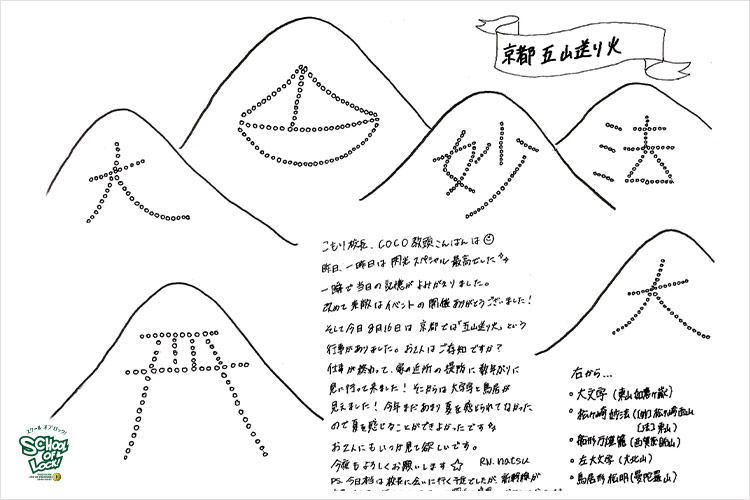 京都 五山送り火
妙
法
大
大
こもり校長、COCO教頭こんばんは
昨日、一昨日は閃光スペシャル最高でした
一瞬で当日の記憶がよみがえりました。
改めて素敵なイベントの開催ありがとうございました！
そして今日8月16日は京都では「五山送り火」という
行事がありました。お2人はご存知ですか？
仕事が終わって、家の近所の堤防に数年ぶりに
見に行って来ました！そこからは大文字と鳥居が
見えました！今年まだあまり夏を感じられてなかった
ので夏を感じることができよかったです
お2人にもいつか見て欲しいです。
今夜もよろしくお願いします☆ RN.natsu
PS.今日本当は校長に会いに行く予定でしたが、新幹線が
右から…
大文字（東山如意ヶ嶽）
松ヶ崎妙法（[妙]松ヶ崎西山
[法]東山）
船形万燈籠（西賀茂船山）
左大文字（大北山）
鳥居形松明（曼陀羅山）
スクール オブ ロック！
SCHOOL OF LOCK!